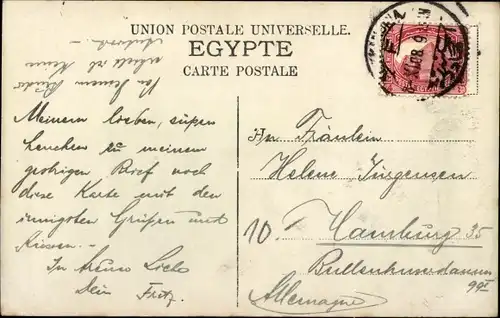 UNION POSTALE UNIVERSELLE.
EGYPTE
CARTE POSTALE
Meinem lieben, süßen
zu meinem
gestrigen Brief noch
diese Karte mit den
innigsten Grüßen und
Küssen.–
In treuer Liebe
Dein Fritz.
An Fräulein
Helene Jürgensen
10. Hamburg 35
99 II
Allemagne